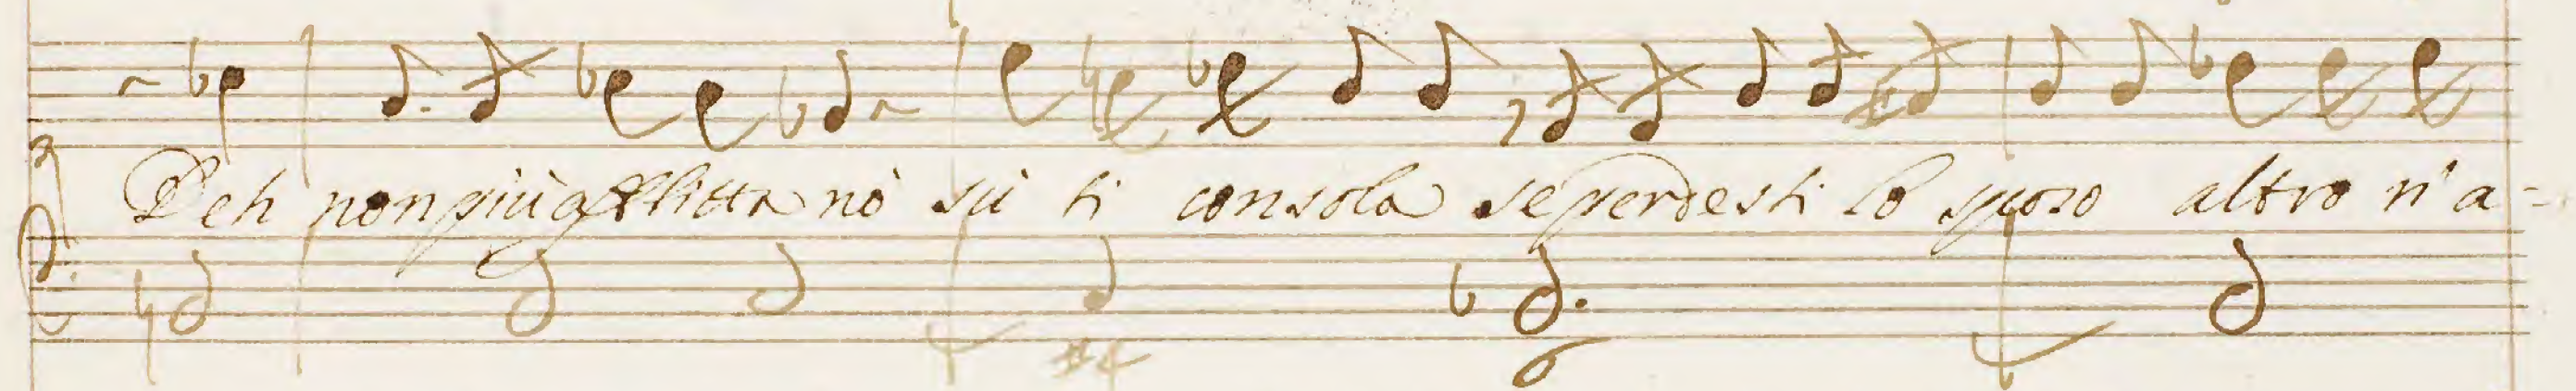 Deh non più afflitta nò sù ti consola se perdesti lo sposo altro n'a=
6